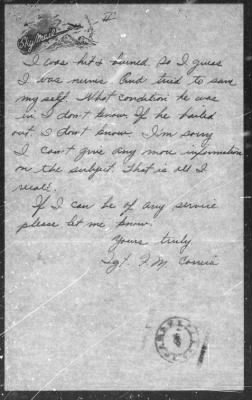 Sky Mail
II
I was hit & burned. So I guess
I was nervis. And tried to save
my self. What condition he was
in, I don't know. If he bailed
out. I don't know. I'm sorry
I can't give any more information
on the subject. That is all I
recall.
If I can be of any service
please let me know.
Yours truly
Sgt. F. M. Correia